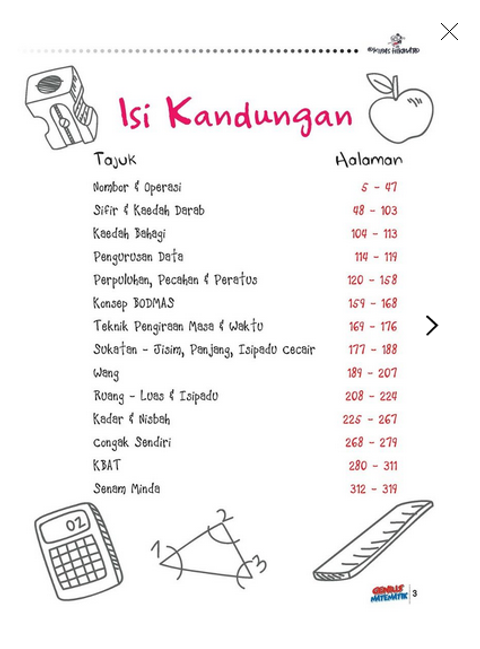 Isi Kandungan
Tajuk Halaman
Nombor & Operasi 5 - 47
Sifir & Kaedah Darab 48 - 103
Kaedah Bahagi 104 - 113
Pengurusan Data 114 - 119
Perpuluhan, Pecahan & Peratus 120 - 158
Konsep BODMAS 159 - 168
Teknik Pengiraan Masa & Waktu 169 - 176
Sukatan - Jisim, Panjang, Isipadu Cecair 177 - 188
Wang 189 - 207
Ruang - Luas & Isipadu 208 - 224
Kadar & Nisbah 225 - 267
Congak Sendiri 268 - 279
KBAT 280 - 311
Senam Minda 312 - 319
02
2
1
3
GENIUS
MATEMATIK 3